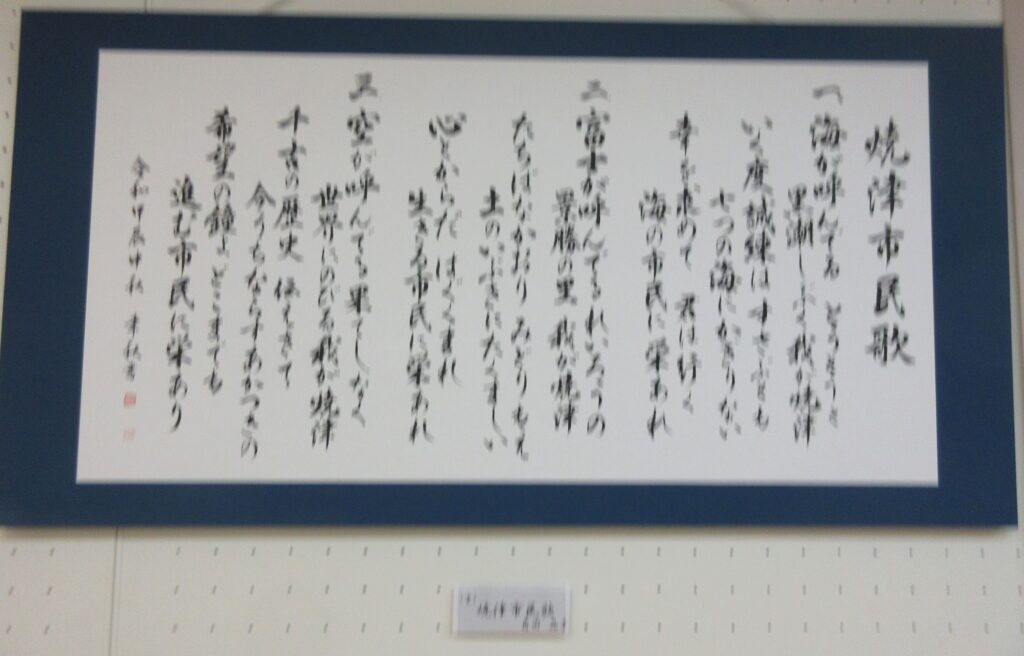 焼津市民歌
一 海が呼んでる どうどうと
黒潮しぶく 我が焼津
いく度試練は すさぶとも
七つの海に かぎりない
幸を求めて 君は行く
海の市民に 栄あれ
二 富士が呼んでる れいろうの
景勝の里 我が焼津
たちばなかおり みどりもえ
土のいぶきに たくましい
心とからだ はぐくまれ
生きる市民に 栄あれ
三 空が呼んでる 果てしなく
世界にのびる 我が焼津
千古の歴史 伝えきて
今うちならす あかつきの
希望の鐘よ どこまでも
進む市民に 栄あり
令和甲辰中秋
焼津市民歌